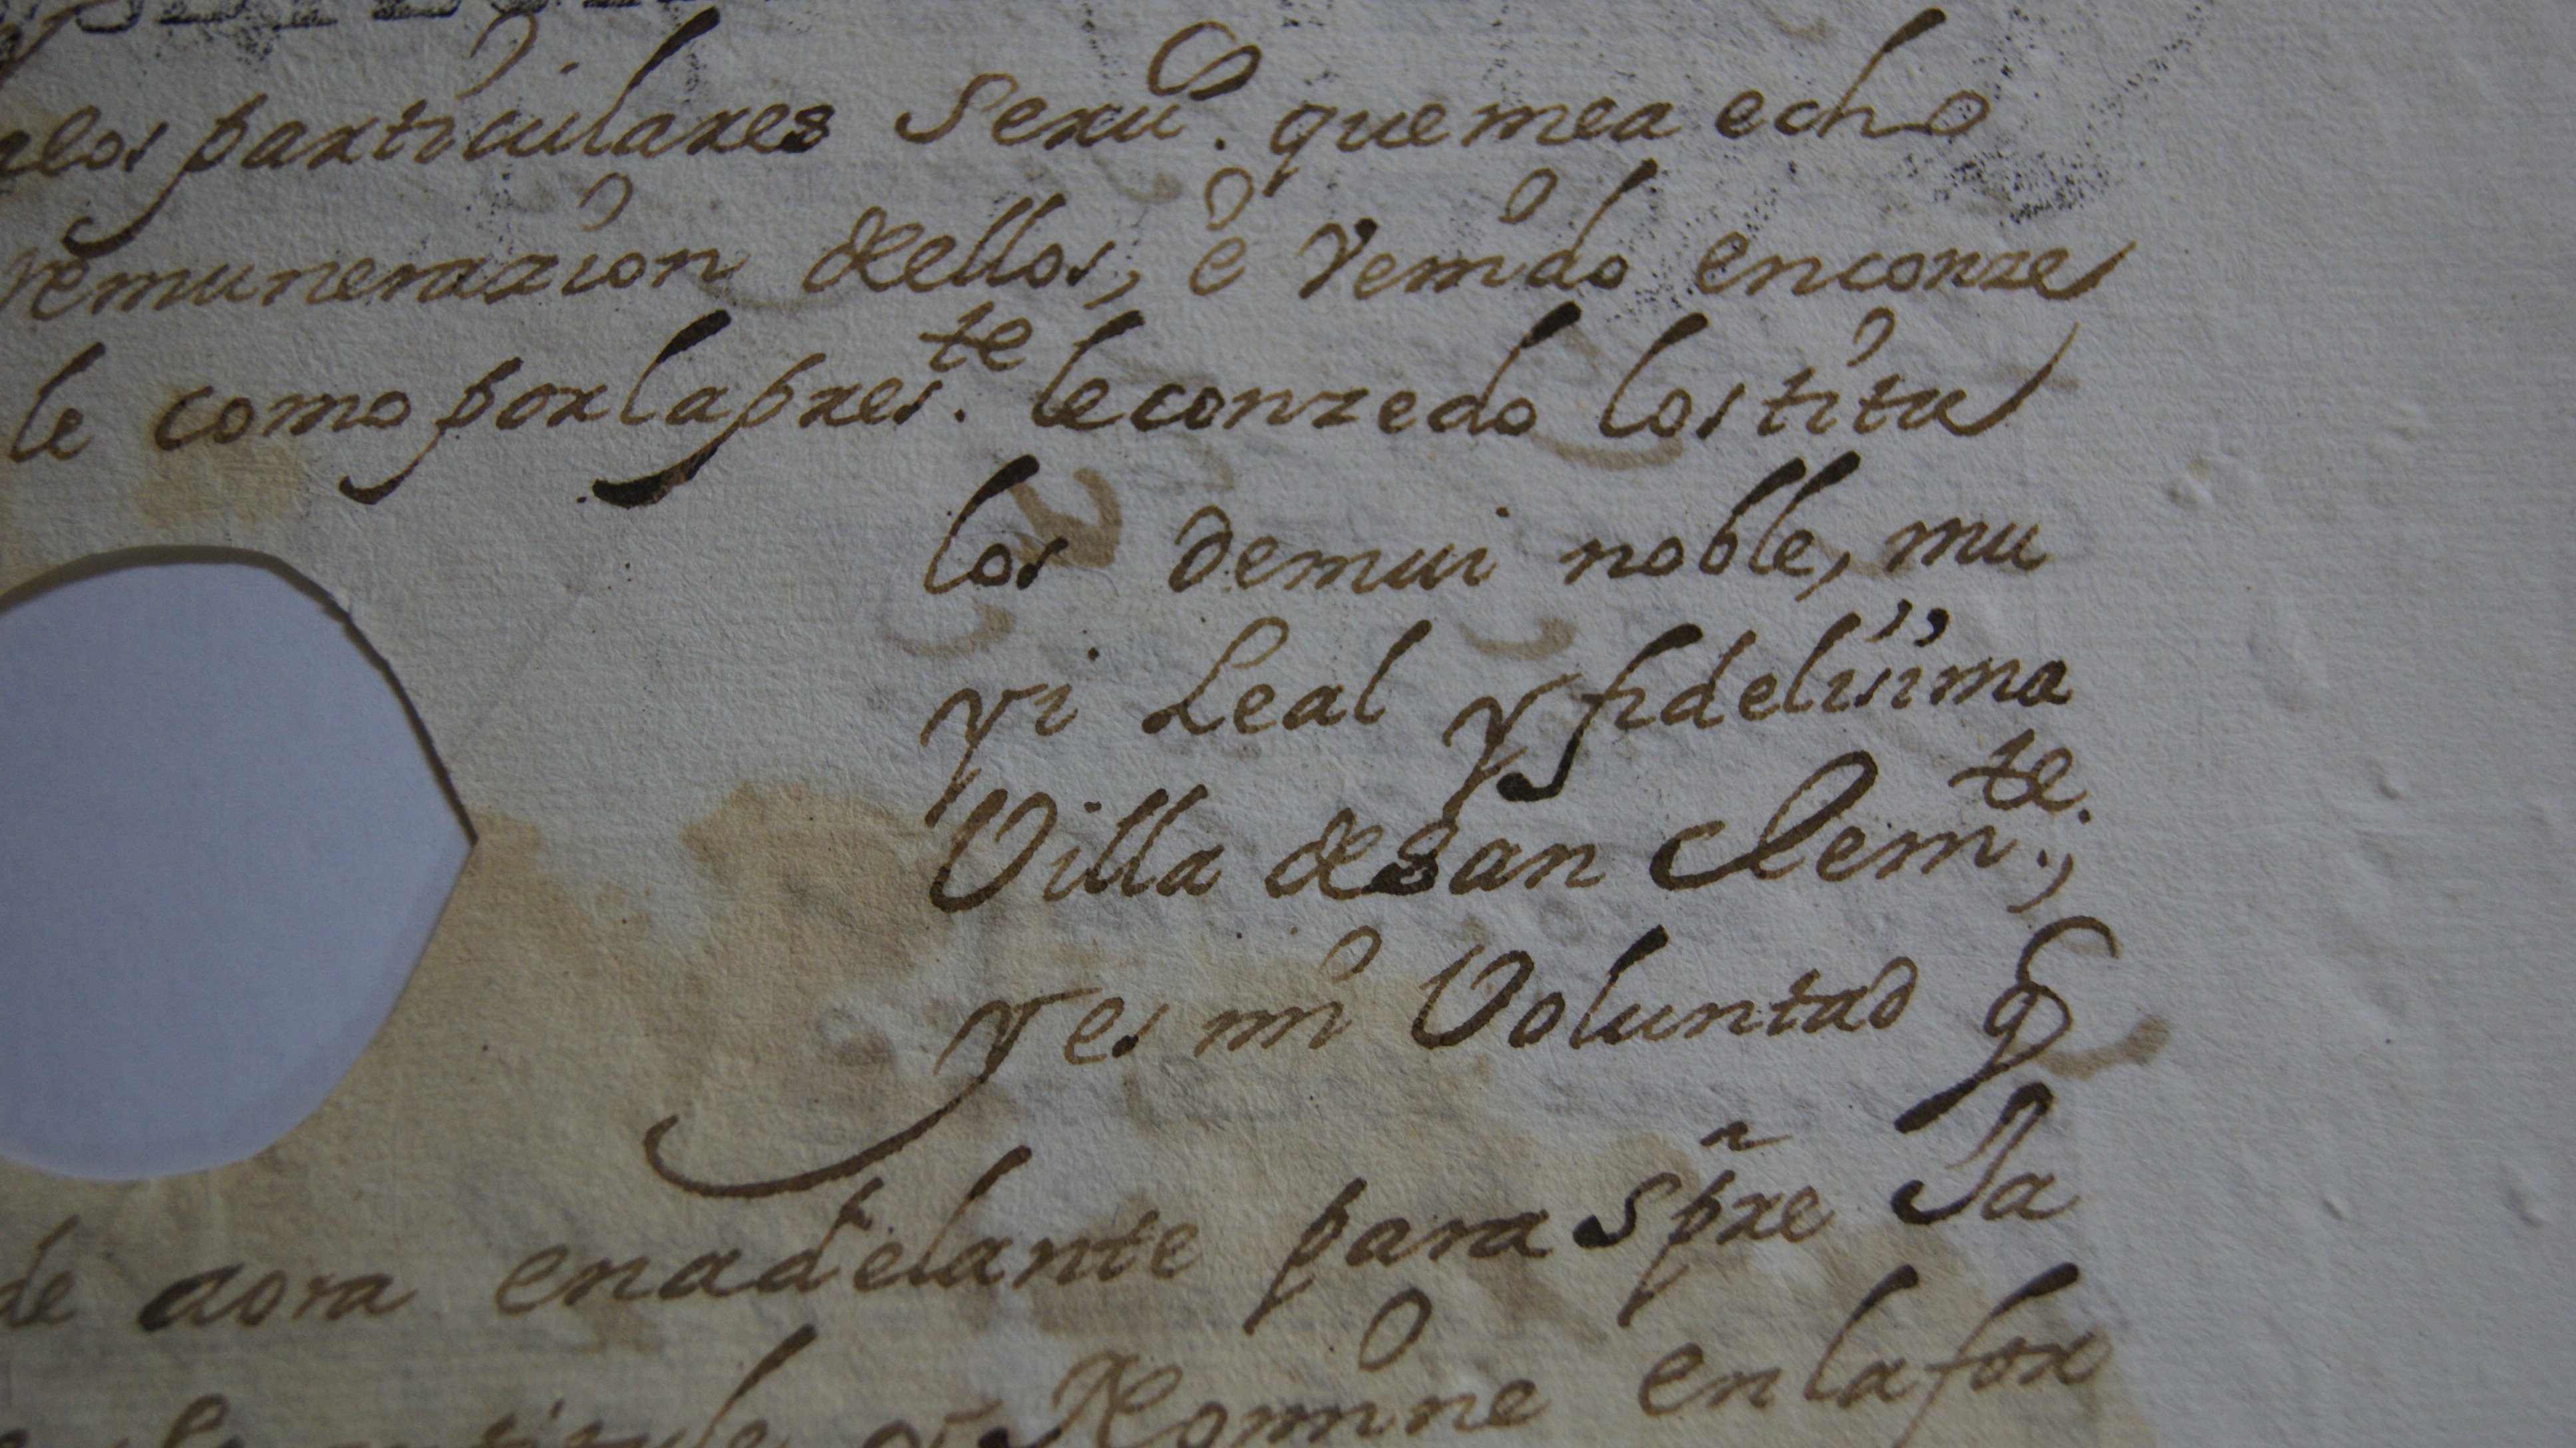 los particulares Seruos. que mea echo
remunerazion dellos, è Venido enconze
le como por la preste. le conzedo los titu
los de mui noble, mu
yi Leal y fidelisima
Villa de San Clemte.,
y es mi Voluntad q
de aora en adelante para spre Ja
y Nomine en la for